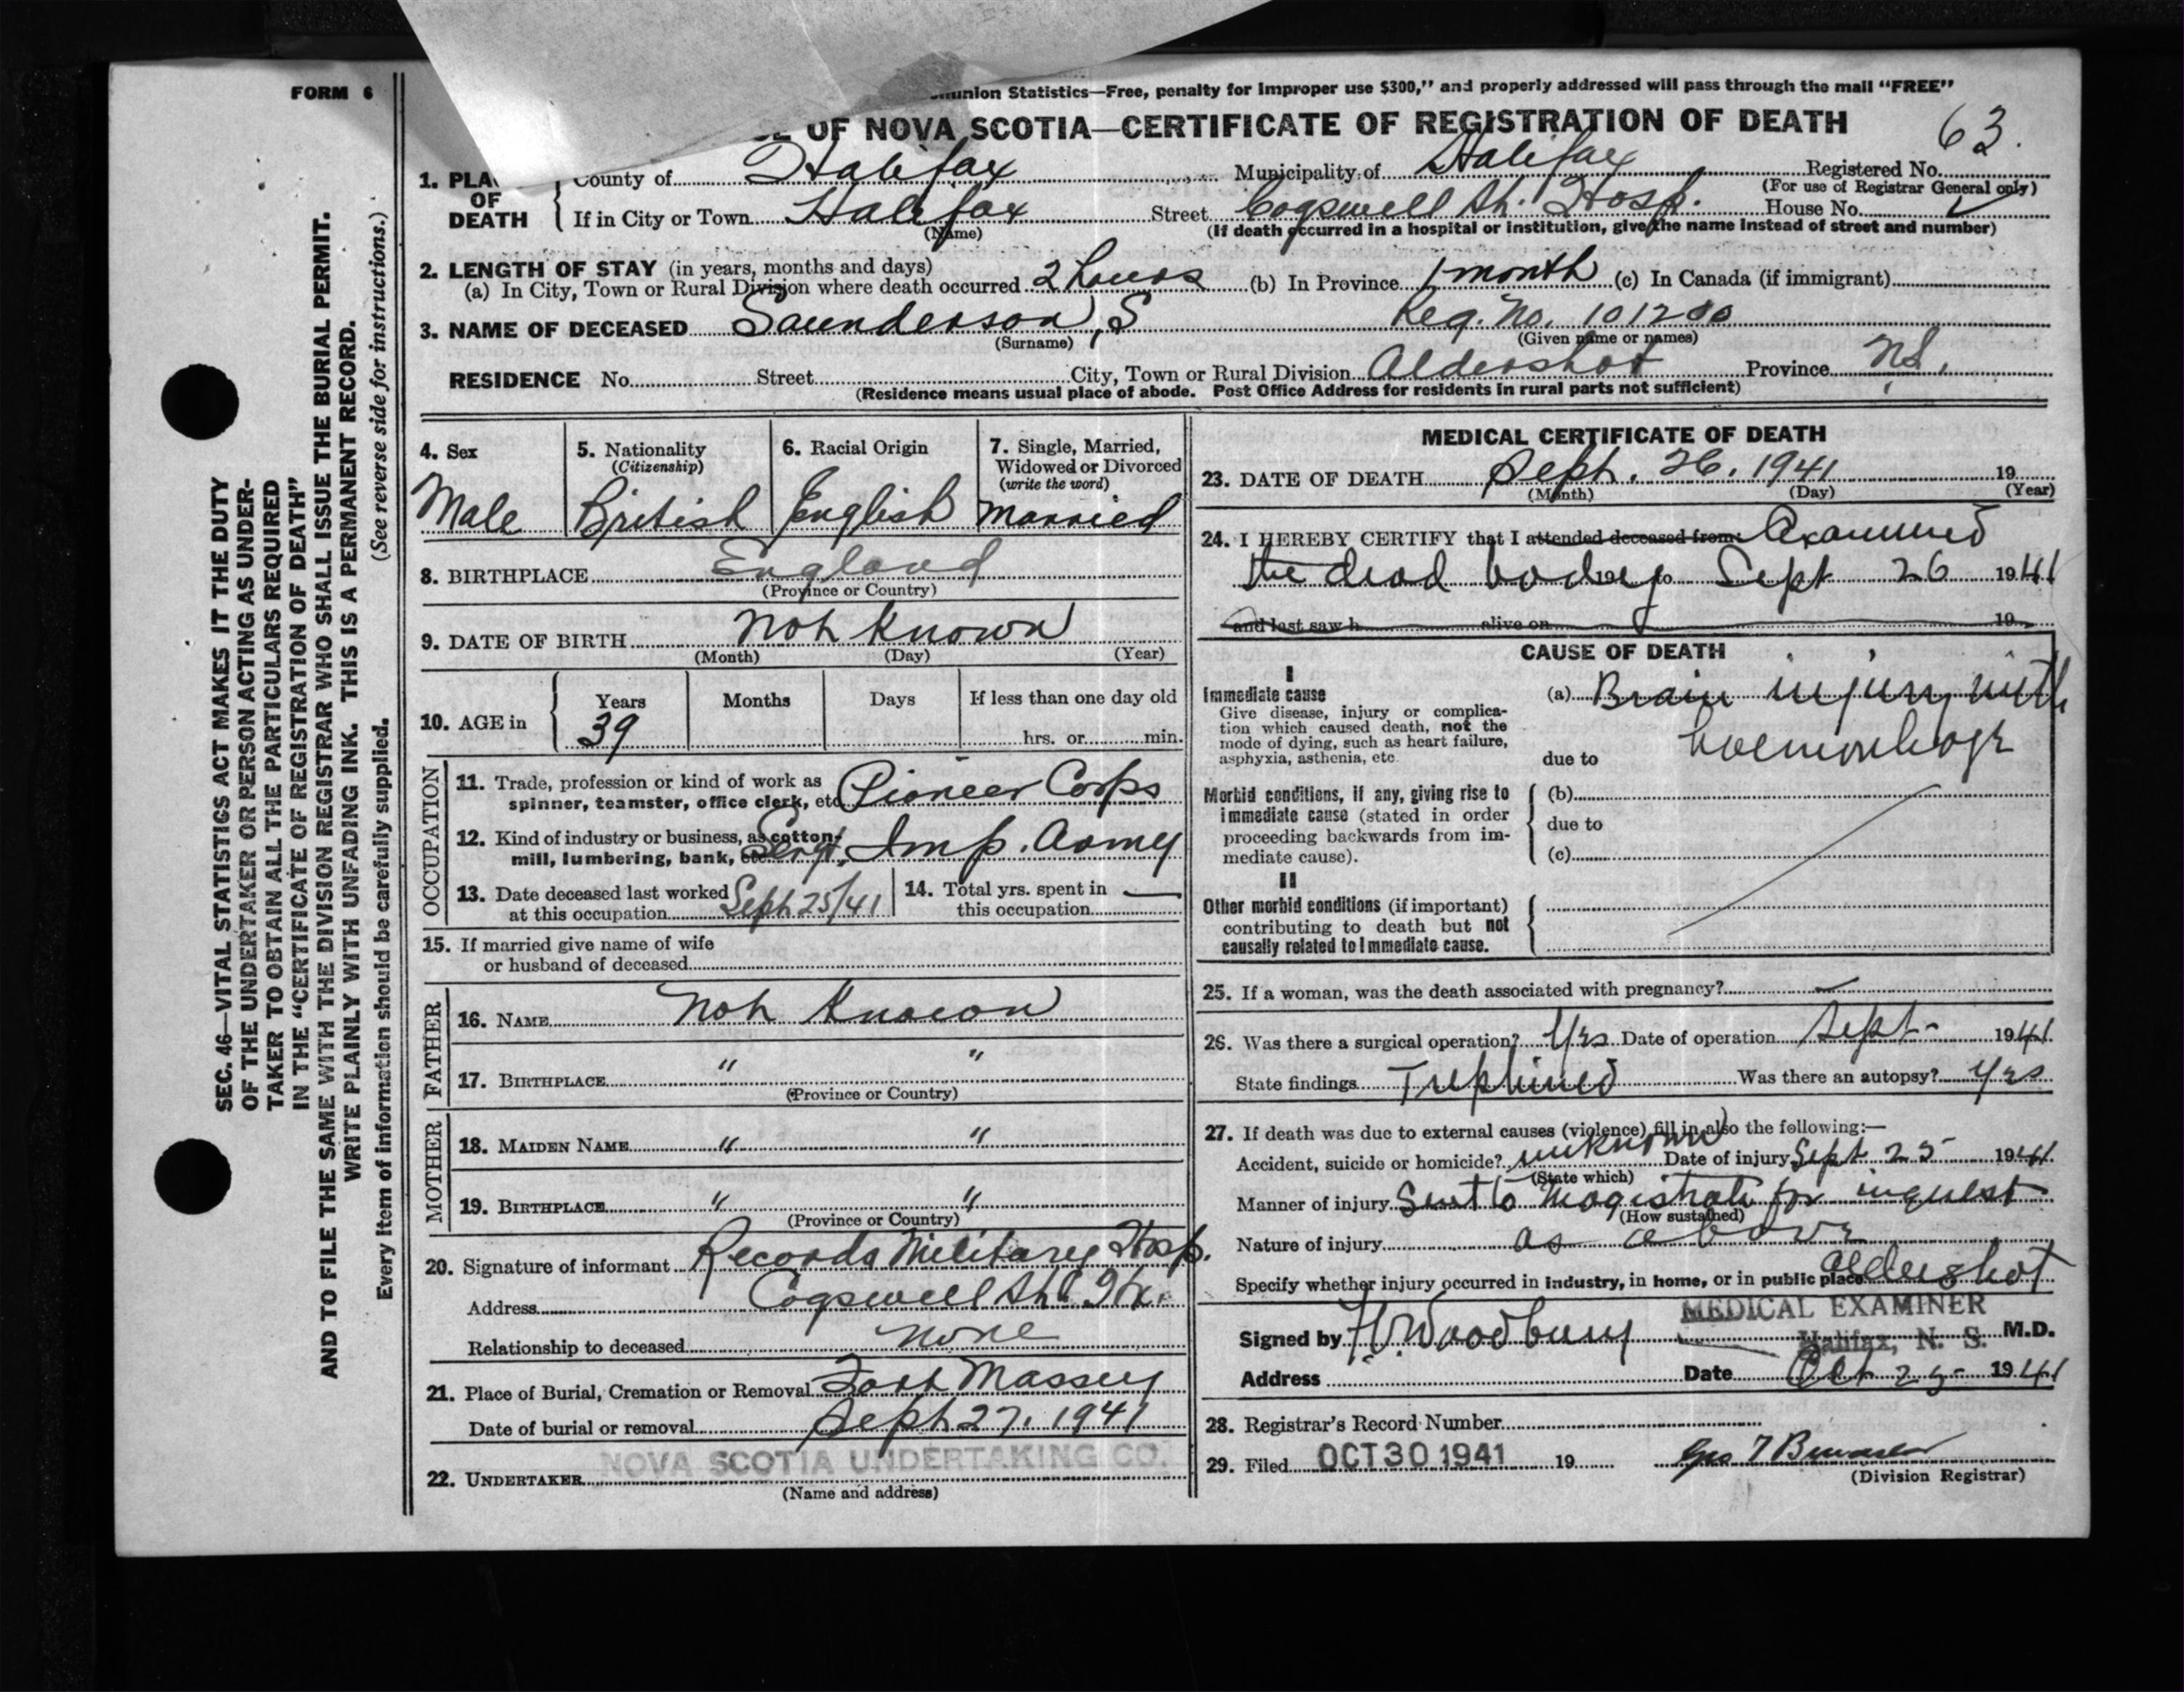 FORM 6
SEC. 46—VITAL STATISTICS ACT MAKES IT THE DUTY
OF THE UNDERTAKER OR PERSON ACTING AS UNDER-
TAKER TO OBTAIN ALL THE PARTICULARS REQUIRED
IN THE "CERTIFICATE OF REGISTRATION OF DEATH"
AND TO FILE THE SAME WITH THE DIVISION REGISTRAR WHO SHALL ISSUE THE BURIAL PERMIT.
WRITE PLAINLY WITH UNFADING INK. THIS IS A PERMANENT RECORD.
Every item of information should be carefully supplied. (See reverse side for instructions.)
Statistics—Free, penalty for improper use $300," and properly addressed will pass through the mail "FREE"
OF NOVA SCOTIA—CERTIFICATE OF REGISTRATION OF DEATH
63.
1. PLA OF DEATH
County of Halifax Municipality of Halifax Registered No.
(For use of Registrar General only)
If in City or Town Halifax Street Cogswell St. Hosp. House No.
(Name) (If death occurred in a hospital or institution, give the name instead of street and number)
2. LENGTH OF STAY (in years, months and days)
(a) In City, Town or Rural Division where death occurred 2 hours (b) In Province 1 month (c) In Canada (if immigrant)
3. NAME OF DECEASED Saunderson, S Reg. No. 101200
(Surname) (Given name or names)
RESIDENCE No. Street City, Town or Rural Division Aldershot Province N.S.
(Residence means usual place of abode. Post Office Address for residents in rural parts not sufficient)
4. Sex
Male
5. Nationality
(Citizenship)
British
6. Racial Origin
English
7. Single, Married,
Widowed or Divorced
(write the word)
Married
8. BIRTHPLACE England
(Province or Country)
9. DATE OF BIRTH Not Known
(Month) (Day) (Year)
10. AGE in
Years Months Days If less than one day old
39 hrs. or min.
OCCUPATION
11. Trade, profession or kind of work as
spinner, teamster, office clerk, etc. Pioneer Corps
12. Kind of industry or business, as cotton-
mill, lumbering, bank, etc. Sergt, Imp. Army
13. Date deceased last worked
at this occupation Sept 25/41
14. Total yrs. spent in
this occupation —
15. If married give name of wife
or husband of deceased
FATHER
16. NAME Not Known
17. BIRTHPLACE " "
(Province or Country)
MOTHER
18. MAIDEN NAME " "
19. BIRTHPLACE " "
(Province or Country)
20. Signature of informant Records Military Hosp.
Address Cogswell St. Hx.
Relationship to deceased none
21. Place of Burial, Cremation or Removal Fort Massey
Date of burial or removal Sept 27, 1941
22. UNDERTAKER NOVA SCOTIA UNDERTAKING CO.
(Name and address)
MEDICAL CERTIFICATE OF DEATH
23. DATE OF DEATH Sept. 26. 1941 19
(Month) (Day) (Year)
24. I HEREBY CERTIFY that I attended deceased from: Examined
the dead body 19 to Sept 26 1941
and last saw h alive on 19
CAUSE OF DEATH
I
Immediate cause
Give disease, injury or complica-
tion which caused death, not the
mode of dying, such as heart failure,
asphyxia, asthenia, etc.
(a) Brain injury with
due to haemorrhage
Morbid conditions, if any, giving rise to
immediate cause (stated in order
proceeding backwards from im-
mediate cause).
(b)
due to
(c)
II
Other morbid conditions (if important)
contributing to death but not
causally related to immediate cause.
25. If a woman, was the death associated with pregnancy? —
26. Was there a surgical operation? Yes Date of operation Sept - 1941
State findings Trephined Was there an autopsy? Yes
27. If death was due to external causes (violence) fill in also the following:—
Accident, suicide or homicide? unknown Date of injury Sept 25 1941
(State which)
Manner of injury Sent to Magistrate for inquest
(How sustained)
Nature of injury as above
Specify whether injury occurred in industry, in home, or in public place Aldershot
MEDICAL EXAMINER
Signed by H. Woodbury Halifax, N. S. M.D.
Address Date Oct 25 1941
28. Registrar's Record Number
29. Filed OCT 30 1941 19
(Division Registrar)